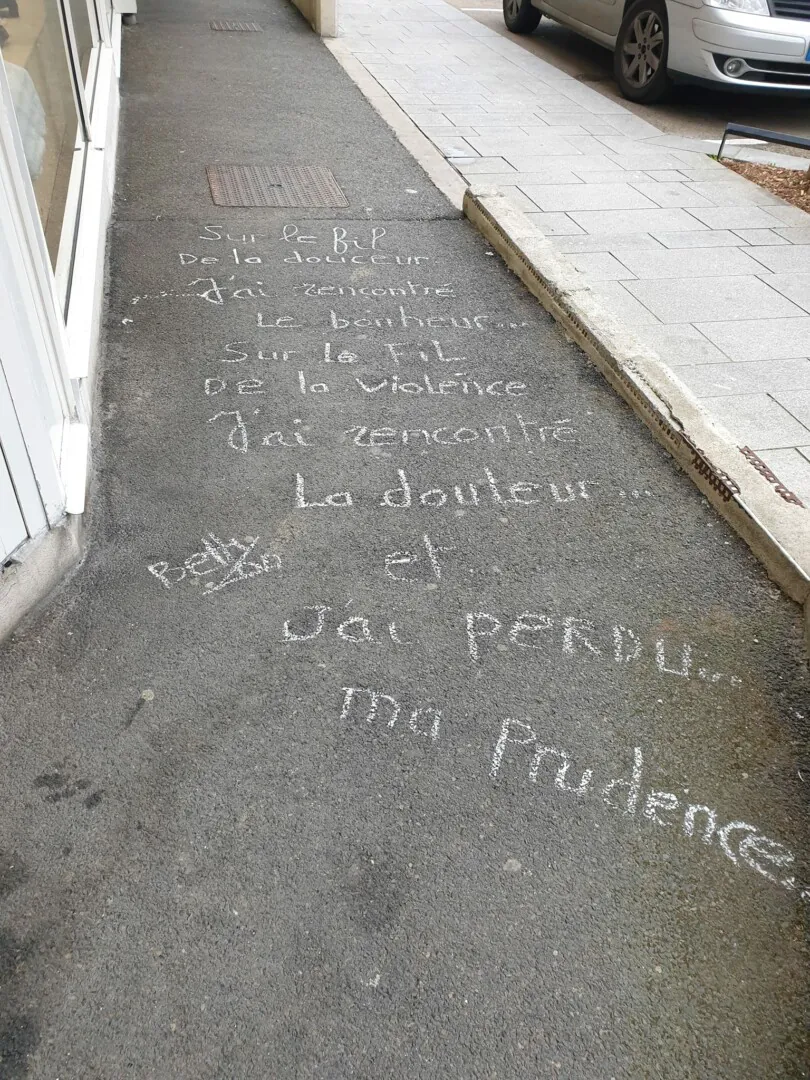 Sur le fil
De la douceur
J'ai rencontré
Le bonheur...
Sur le FiL
De la violence
J'ai rencontré
La douleur...
et
J'ai PERDU...
ma Prudence...